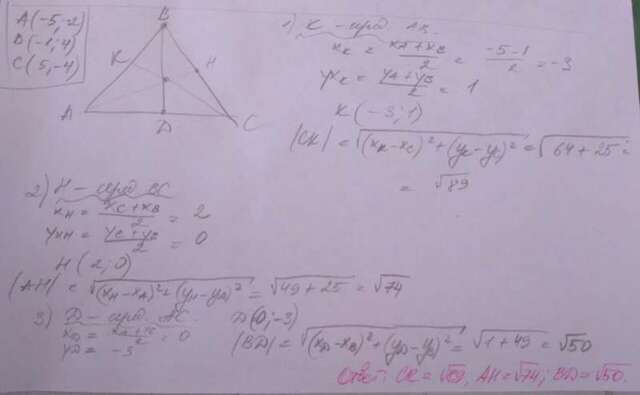 A(-5;-2)
B(-1;4)
C(5;-4)
B
K
H
A
D
C
1) K - сред. AB
x_K = (x_A + x_B)/2 = (-5-1)/2 = -3
y_K = (y_A + y_B)/2 = 1
K(-3;1)
|CK| = √((x_K - x_C)² + (y_K - y_C)²) = √(64+25) =
= √89
2) H - сред. BC
x_H = (x_C + x_B)/2 = 2
y_H = (y_C + y_B)/2 = 0
H(2;0)
|AH| = √((x_H - x_A)² + (y_H - y_A)²) = √(49+25) = √74
3) D - сред. AC. D(0;-3)
x_D = (x_A + x_C)/2 = 0
y_D = -3
|BD| = √((x_D - x_B)² + (y_D - y_B)²) = √(1+49) = √50
Ответ: CK = √89, AH = √74; BD = √50.